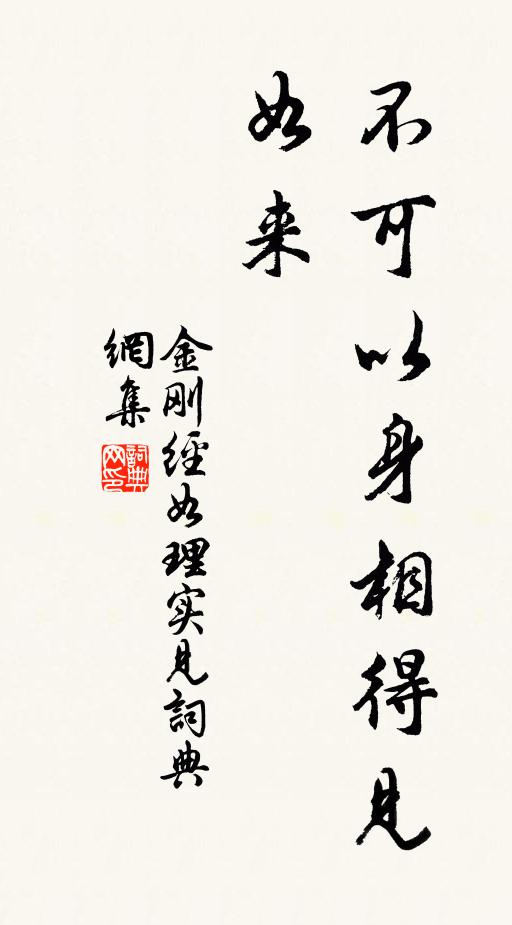 不可以身相得见
如来
金刚經如理实见詞典
網集
詞典
网印